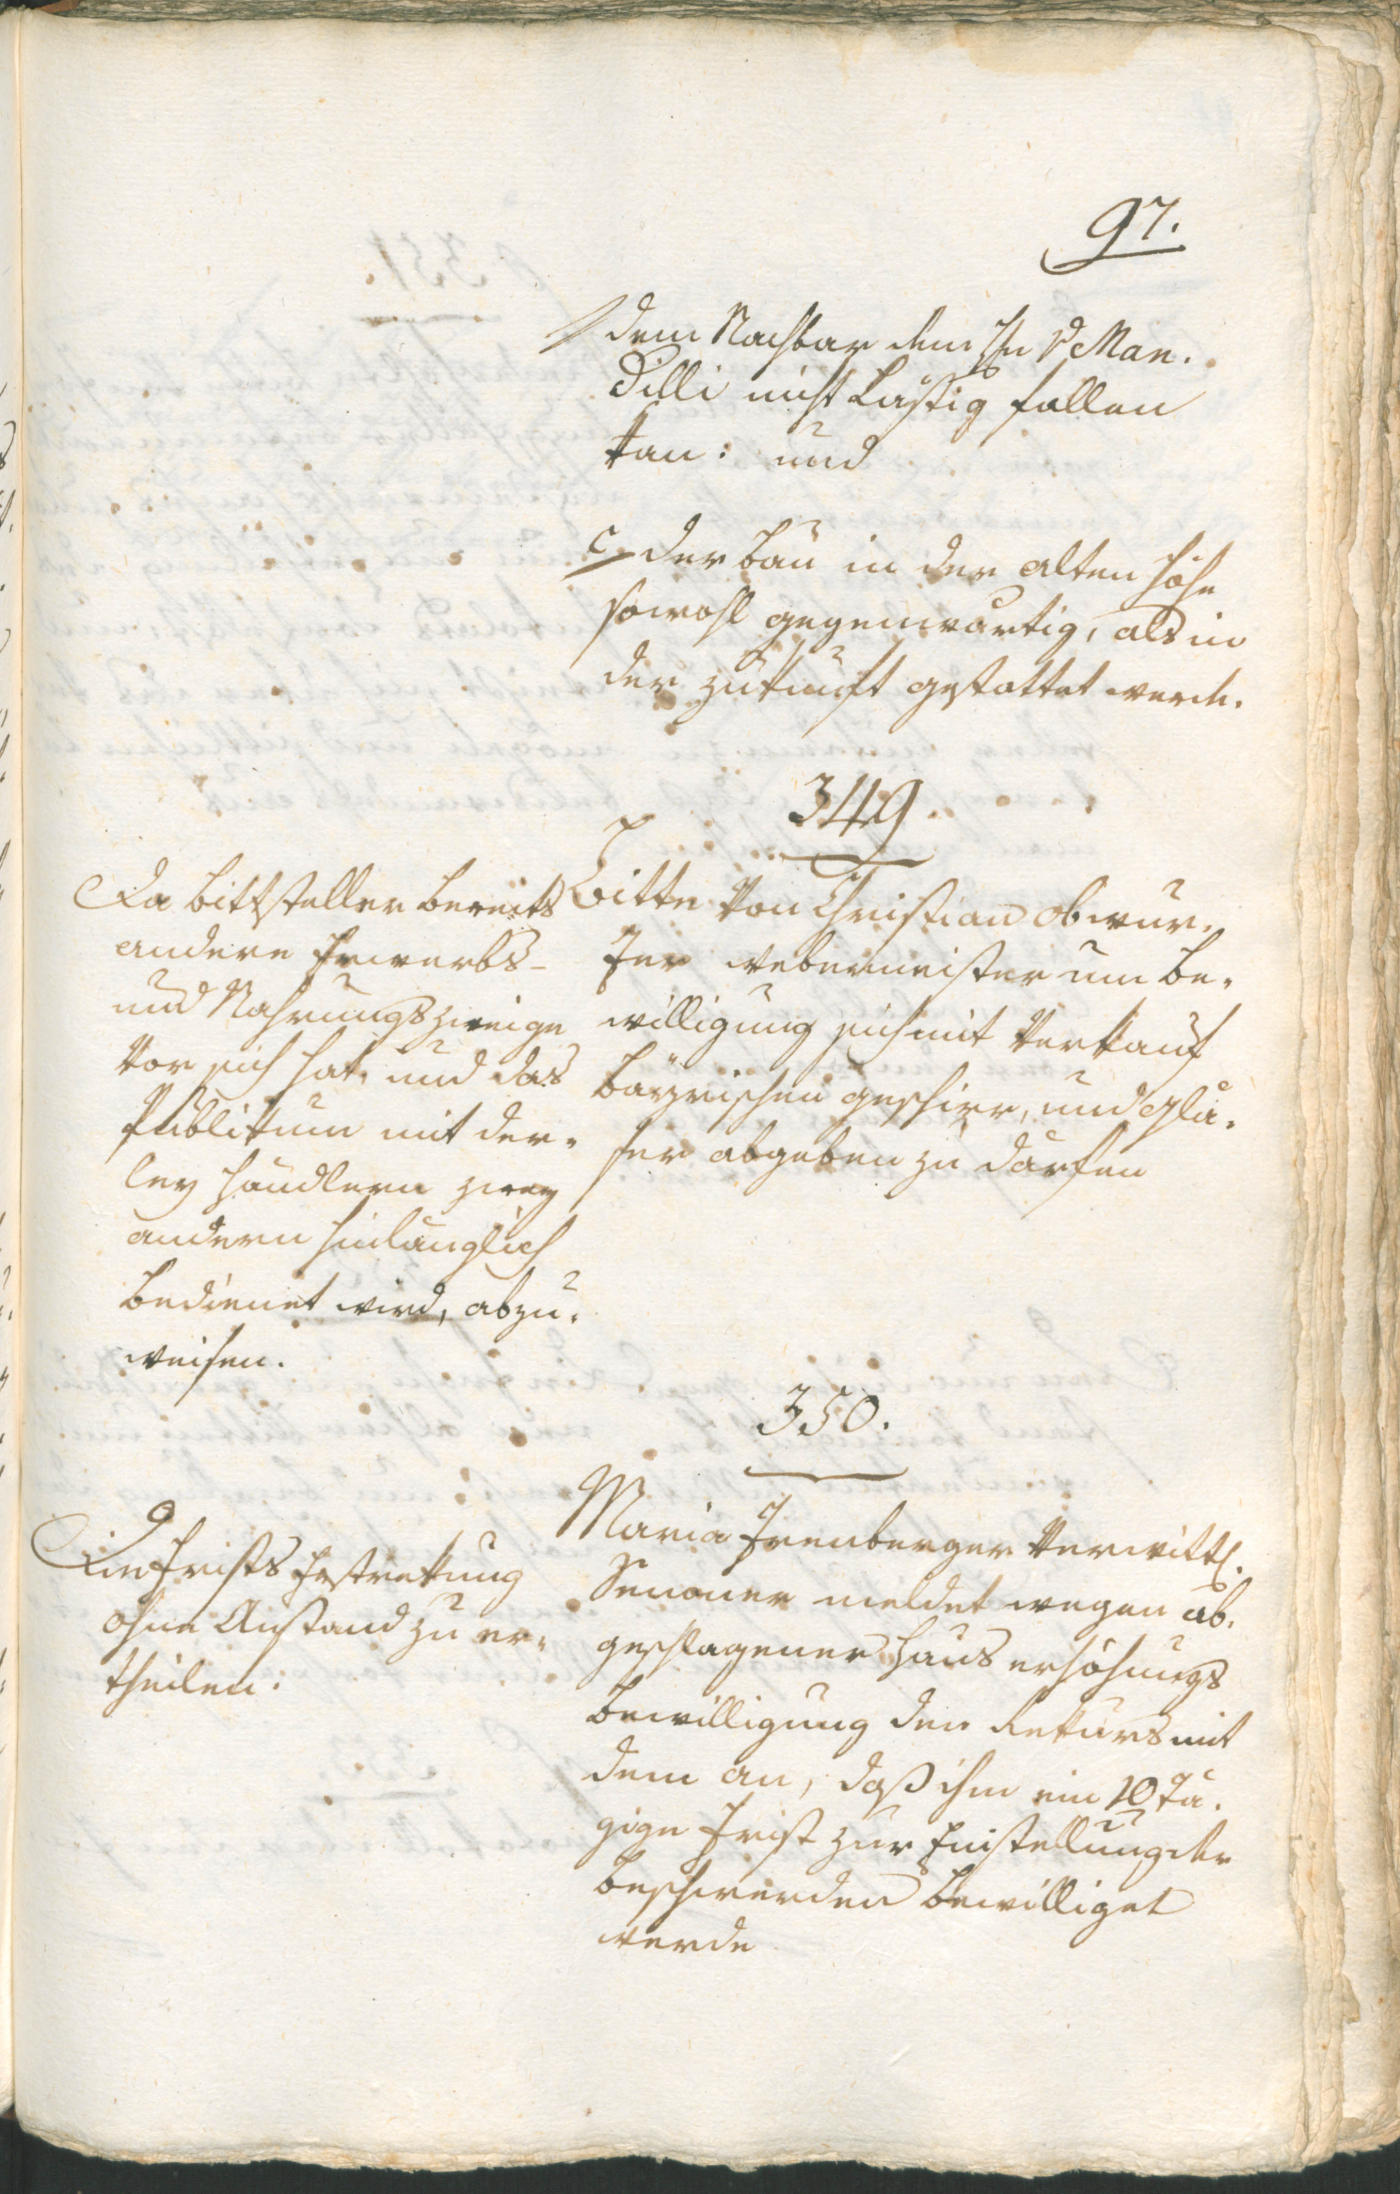 97.
dem Nachbar dem Hn v Man-
dilli nicht Lästig fallen
kan: und
c, der bau in der alten Höhe
sowohl gegenwärtig, als in
der zukunft gestattet werde.
349.
Bitte Von Christian obwur-
zer webermeister um be-
willigung sich mit Verkauf
bäyrischen geschirr, und glä-
ser abgeben zu dürfen
Da bittsteller bereits
andere Erwerbs-
und Nahrungszweige
Vor sich hat, und das
Publikum mit der-
ley händlern zwey
andern hinlänglich
bedienet wird, abzu-
weisen.
350.
Maria Verwittl.
Senoner meldet wegen ab-
geschlagener Haus erhöhungs
bewilligung den Rekurs mit
dem an, daß ihm ein 10 tä-
gige frist zur Einstellung der
beschwerden bewilliget
werde
Die frists Erstrekung
ohne Anstand zu er-
theilen: